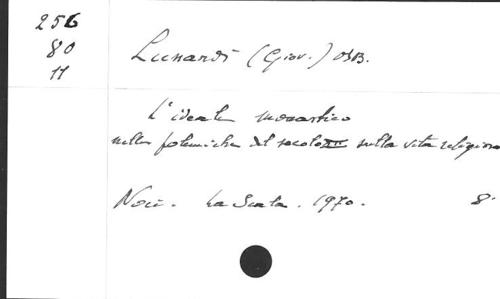 256
80
11
Lunardi (Giov.) OSB.
L'ideale monastico
nelle polemiche del secolo XII sulla vita religiosa
Noci. La Scala. 1970. 8°